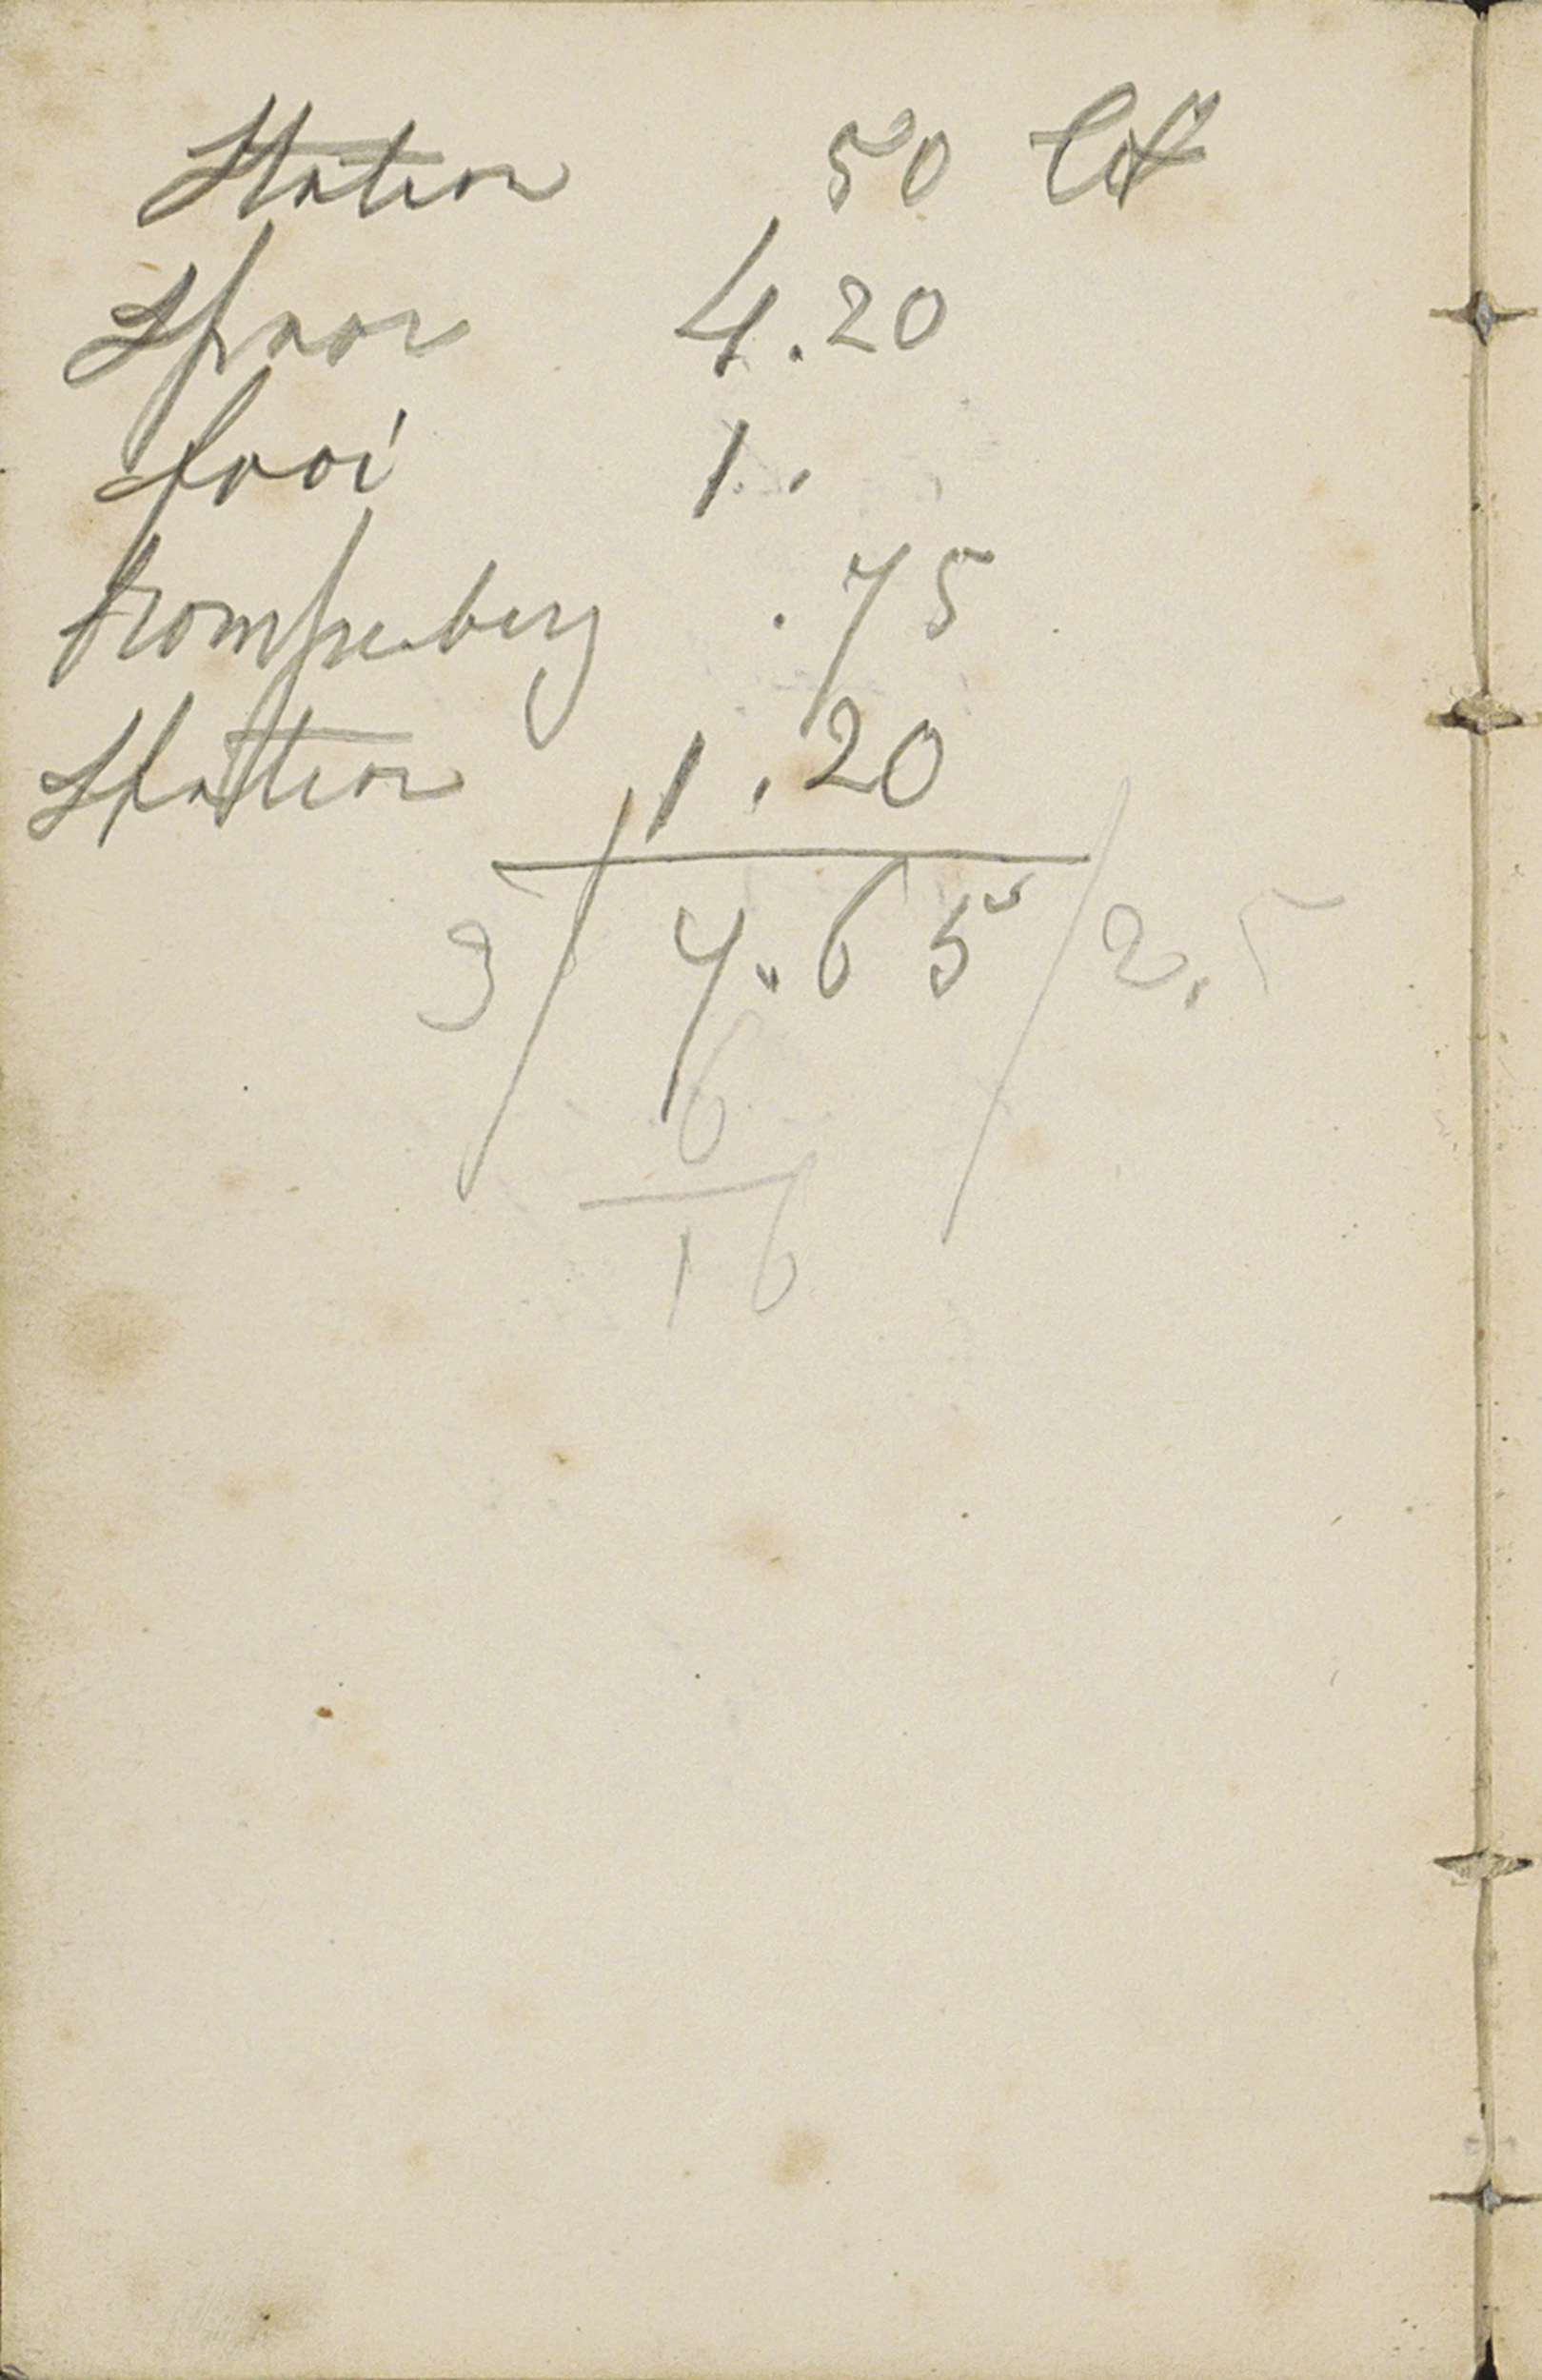 Station 50 ct
Spoor 4.20
fooi 1.
Trompenberg .75
Station 1.20
3/7.65/2.5
6
16